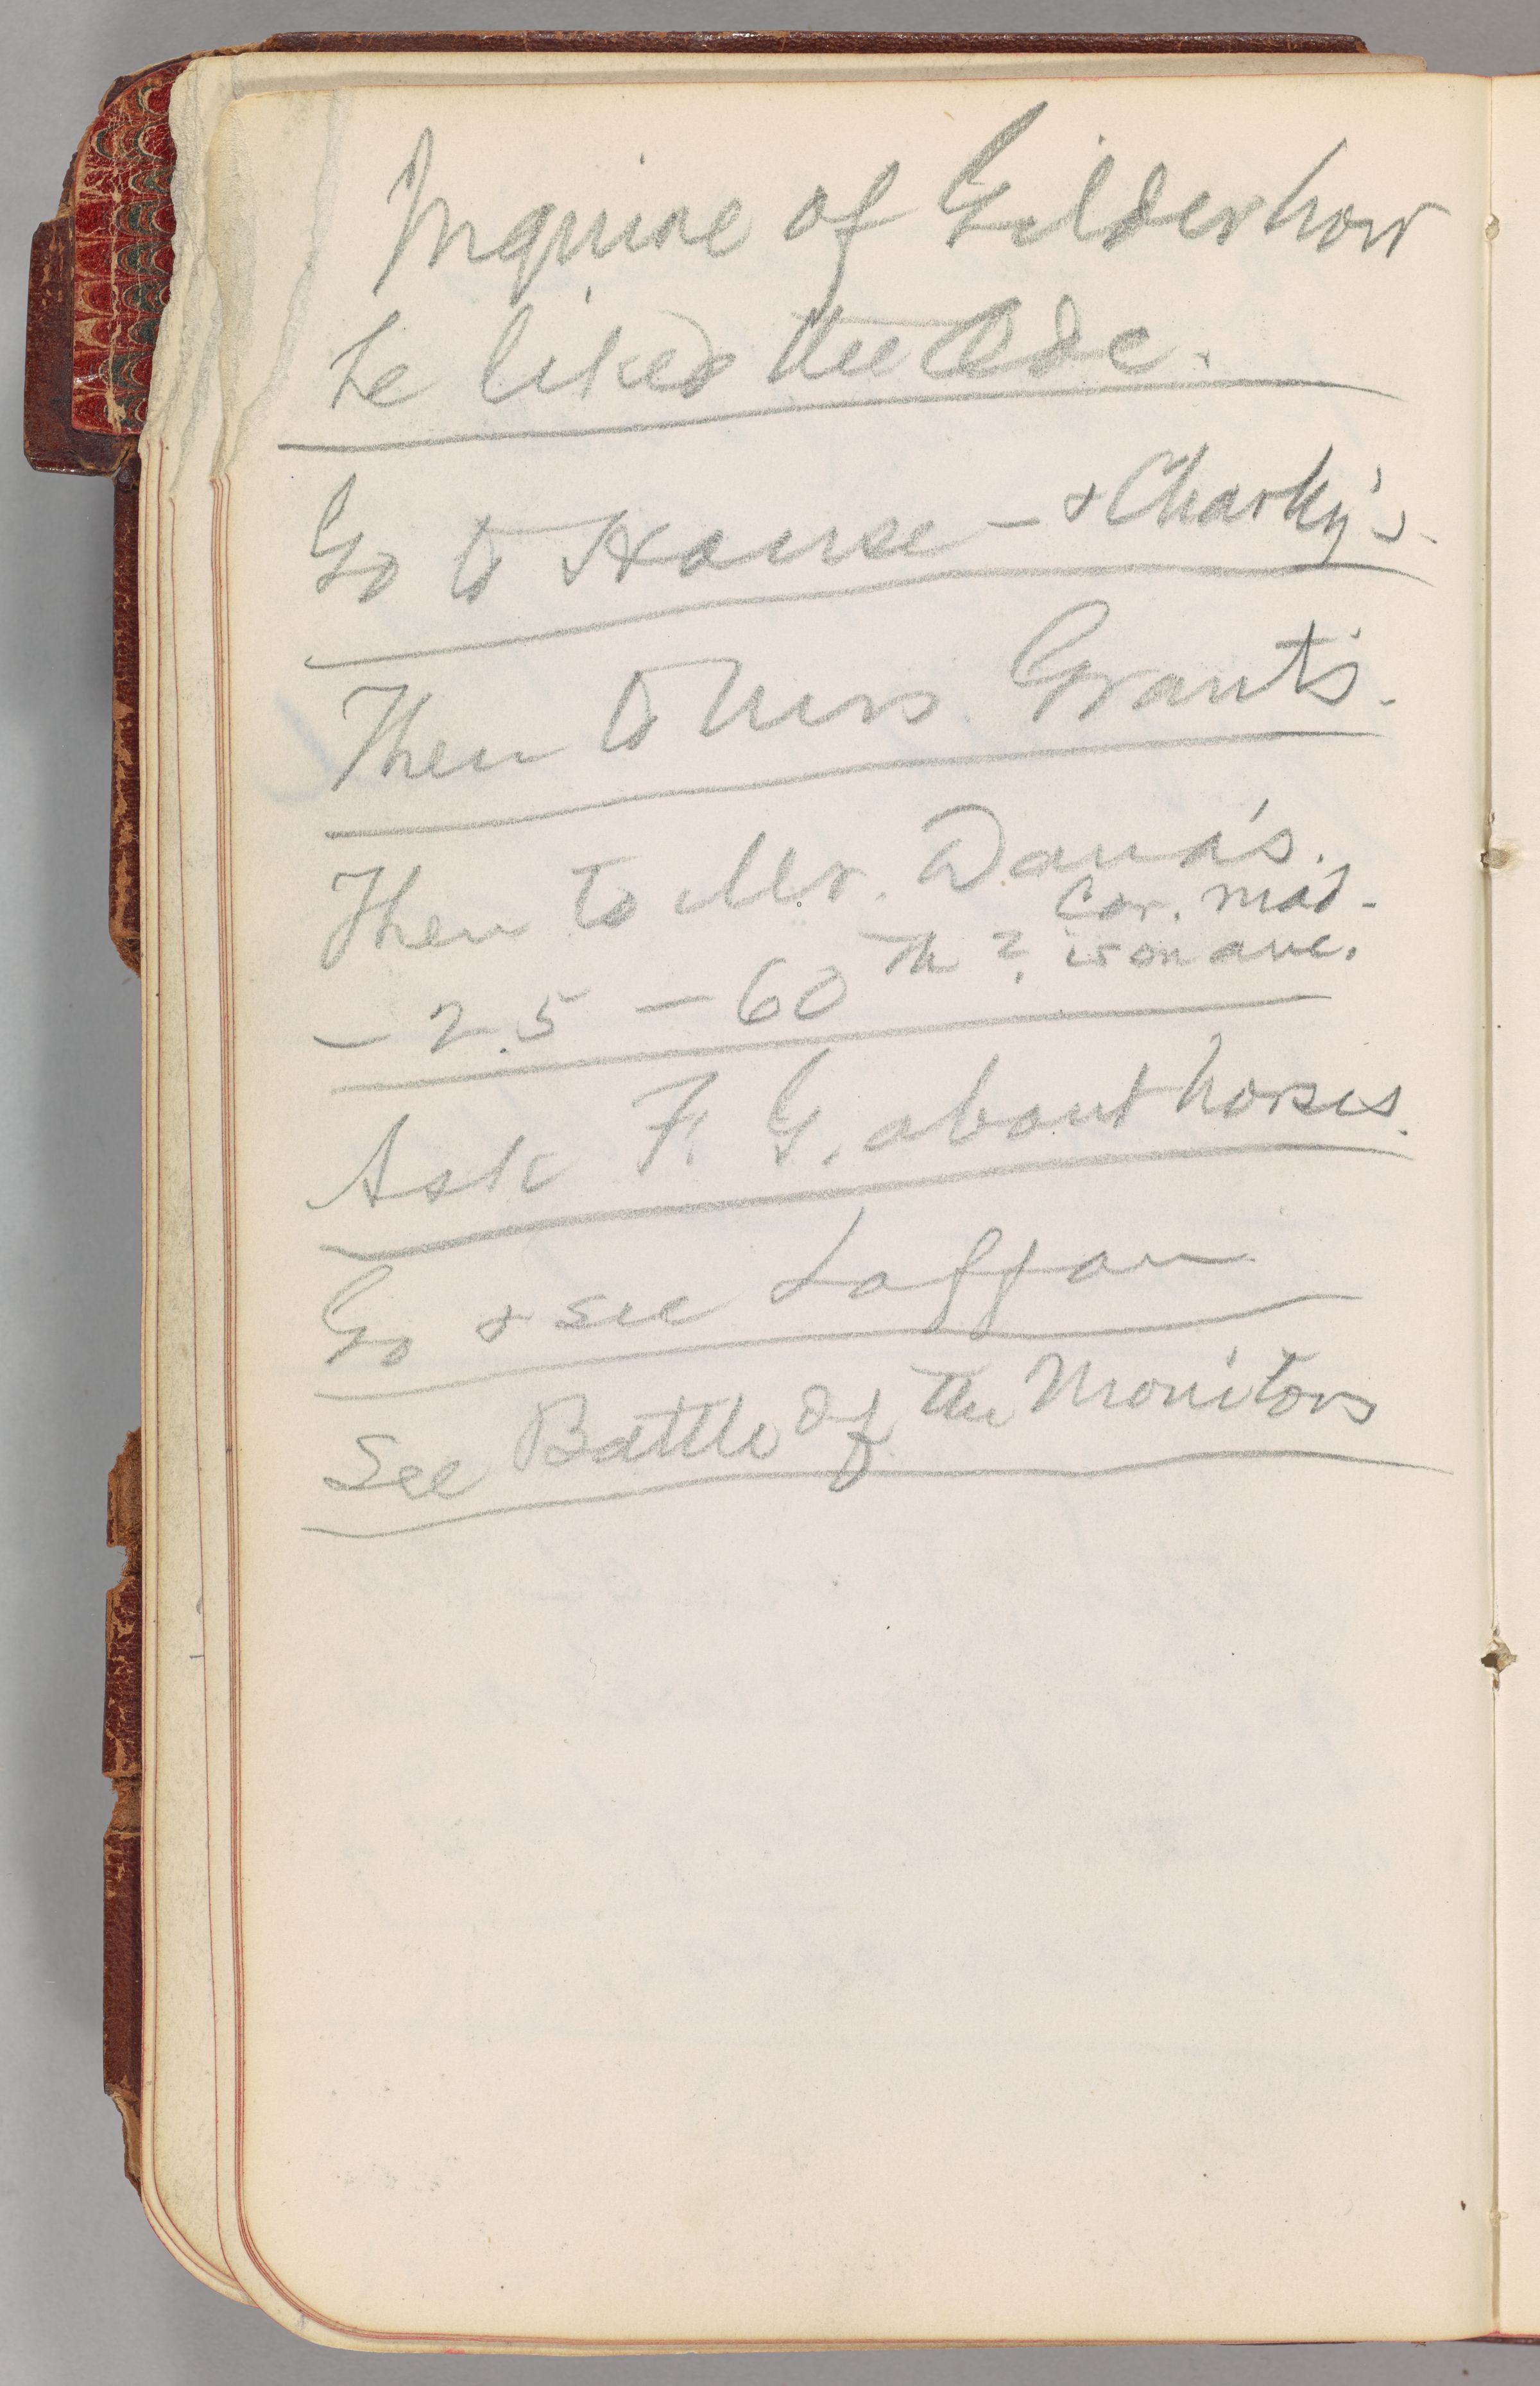 Inquire of Gilder how
he liked the Ode.
Go to House - & Charley's.
Then to Mrs. Grant's.
Then to Mr. Dana's.
Cor. Mad-
- 25 - 60th? ison ave.
Ask F. G. about horses.
Go & see Laffan
See Battle of the Monitors